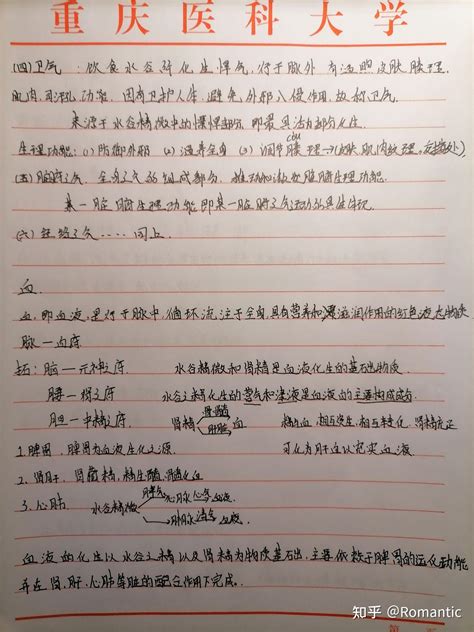 重庆医科大学
(四)卫气：饮食水谷所化生悍气,行于脉外有温煦皮肤,腠理,
肌肉,司汗孔功能,因有卫护人体,避免外邪入侵作用,故称卫气。
来源于水谷精微中的慓悍部分,即最具活力部分化生
生理功能：(1)防御外邪 (2)温养全身 (3)调节腠理→(皮肤,肌肉纹理,交接处)
(五)脏腑之气,全身之气的组成部分,推动和激发脏腑生理功能.
某一脏腑生理功能即某一脏腑之气运动的具体体现.
(六)经络之气……同上
血.
血,即血液,是行于脉中,循环流注于全身,具有营养和滋润作用的红色液态物质
脉—血府
拓：脑—元神之府. 水谷精微和肾精是血液化生的基础物质.
腰—肾之府 水谷之精化生的营气和津液是血液的主要构成成分
胆—中精之府 肾精 骨髓 肝脏 血 精与血,相互资生,相互转化,肾精充足
1.脾胃,脾胃为血液生化之源. 可化为肝血以充实血液
2.肾肝,肾藏精,精生髓,髓化血
3.心肺 水谷精微 脾气 心脉 心气 血液.
肺脉 清气 血液.
血液的化生以水谷之精以及肾精为物质基础,主要依赖于脾胃的运化功能
并在肾,肝,心肺等脏的配合作用下完成。
知乎 @Romantic